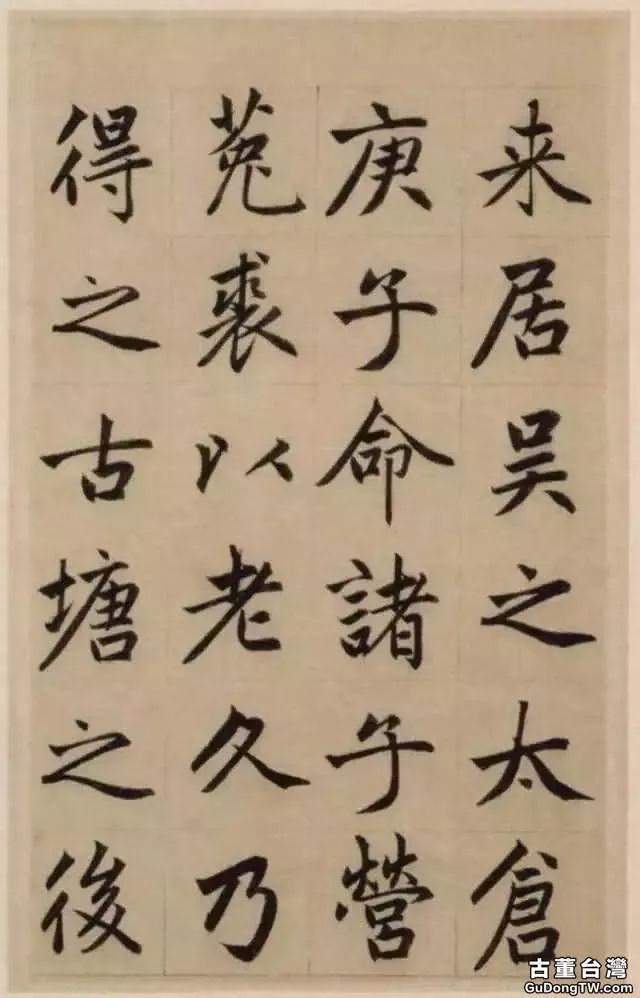 来居吴之太倉
庚子命諸子營
菟裘以老久乃
得之古塘之後
古董台灣
GuDongTW.com